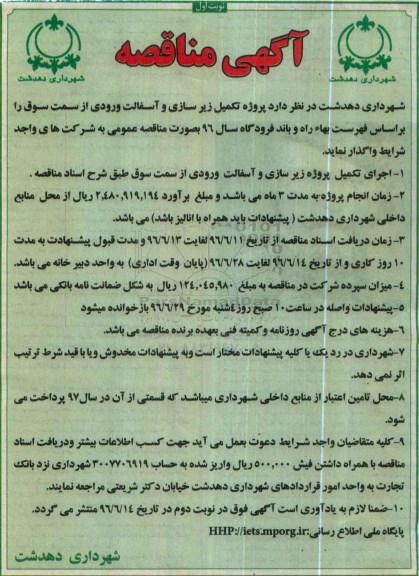 نوبت اول
آگهی مناقصه
شهرداری دهدشت
شهرداری دهدشت
شهرداری دهدشت در نظر دارد پروژه تکمیل زیر سازی و آسفالت ورودی از سمت سوق را
براساس فهرست بهاء راه و باند فرودگاه سال ۹۶ بصورت مناقصه عمومی به شرکت ها ی واجد
شرایط واگذار نماید.
۱-اجرای تکمیل پروژه زیر سازی و آسفالت ورودی از سمت سوق طبق شرح اسناد مناقصه .
۲- زمان انجام پروژه به مدت ۳ ماه می باشد و مبلغ برآورد ۲,۴۸۰,۹۱۹,۱۹۴ ریال از محل منابع
داخلی شهرداری دهدشت ( پیشنهادات باید همراه با انالیز باشد) می باشد.
۳- زمان دریافت اسناد مناقصه از تاریخ ۹۶/۶/۱۱ لغایت ۹۶/۶/۱۳ و مدت قبول پیشنهادت به مدت
۱۰ روز کاری و از تاریخ ۹۶/۶/۱۴ لغایت ۹۶/۶/۲۸ (پایان وقت اداری) به واحد دبیر خانه می باشد.
۴-میزان سپرده شرکت در مناقصه به مبلغ ۱۲۴,۰۴۵,۹۸۰ ریال به شکل ضمانت نامه بانکی می باشد
۵-پیشنهادات واصله در ساعت۱۰ صبح روز۴شنبه مورخ ۹۶/۶/۲۹ بازخوانده میشود
۶-هزینه های درج آگهی روزنامه وکمیته فنی بعهده برنده مناقصه می باشد.
۷-شهرداری در رد یک یا کلیه پیشنهادات مختار است وبه پیشنهادات مخدوش ویا با قید شرط ترتیب
اثر نمی دهد.
۸-محل تامین اعتبار از منابع داخلی شهرداری میباشد که قسمتی از آن در سال۹۷ پرداخت می
شود.
۹-کلیه متقاضیان واجد شرایط دعوت بعمل می آید جهت کسب اطلاعات بیشتر ودریافت اسناد
مناقصه با همراه داشتن فیش ۵۰۰,۰۰۰ ریال واریز شده به حساب ۳۰۰۷۷۰۶۹۱۹ شهرداری نزد بانک
تجارت به واحد امور قراردادهای شهرداری دهدشت خیابان دکتر شریعتی مراجعه نمایند.
۱۰-ضمنا لازم به یادآوری است آگهی فوق در نوبت دوم در تاریخ ۹۶/۶/۱۴ منتشر می گردد.
پایگاه ملی اطلاع رسانی:HHP://iets.mporg.ir
شهرداری دهدشت